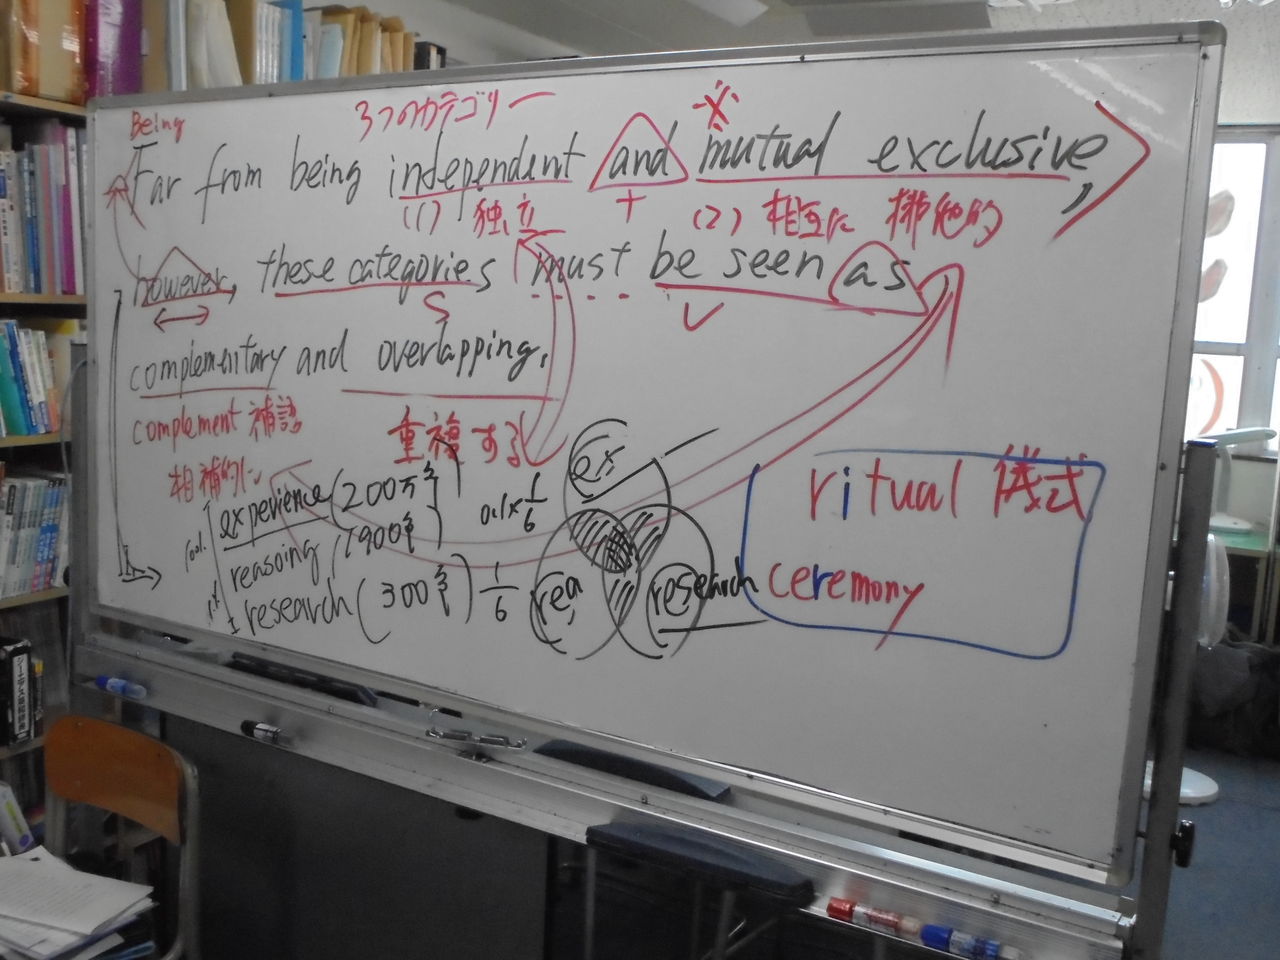 Being
3つのカテゴリー
Far from being independent and mutual exclusive,
(1) 独立 + (2) 相互に 排他的
however, these categories must be seen as
S V
complementary and overlapping.
complement 補語 重複する
相補的に
experience (200万年)
reasoing
research (300年) 1/6
ex
rea
research
ritual 儀式
ceremony